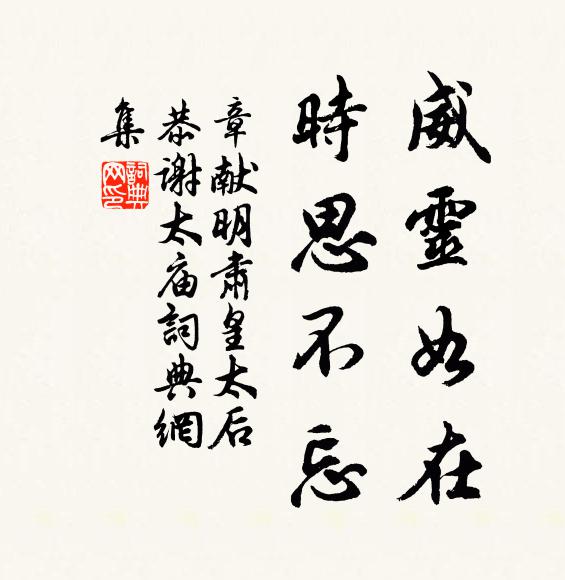 威靈如在
時思不忘
章献明肃皇太后
恭谢太庙詞典網
集
詞典网印